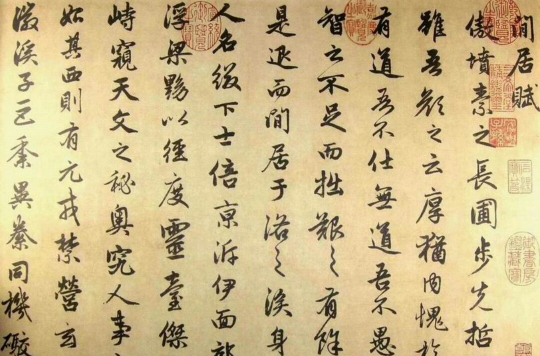 閒居賦
傲墳素之長圃步先哲
雖吾顏之云厚猶內愧於
有道吾不仕無道吾不愚
智之不足而拙艱之有餘
是退而閒居于洛之涘身
人名綴下士倍京泝伊面郊
浮梁黝以徑度靈臺傑
峙窺天文之秘奧究人事
始其西則有元戎禁營玄
徽溪子巨黍異絭同機礮